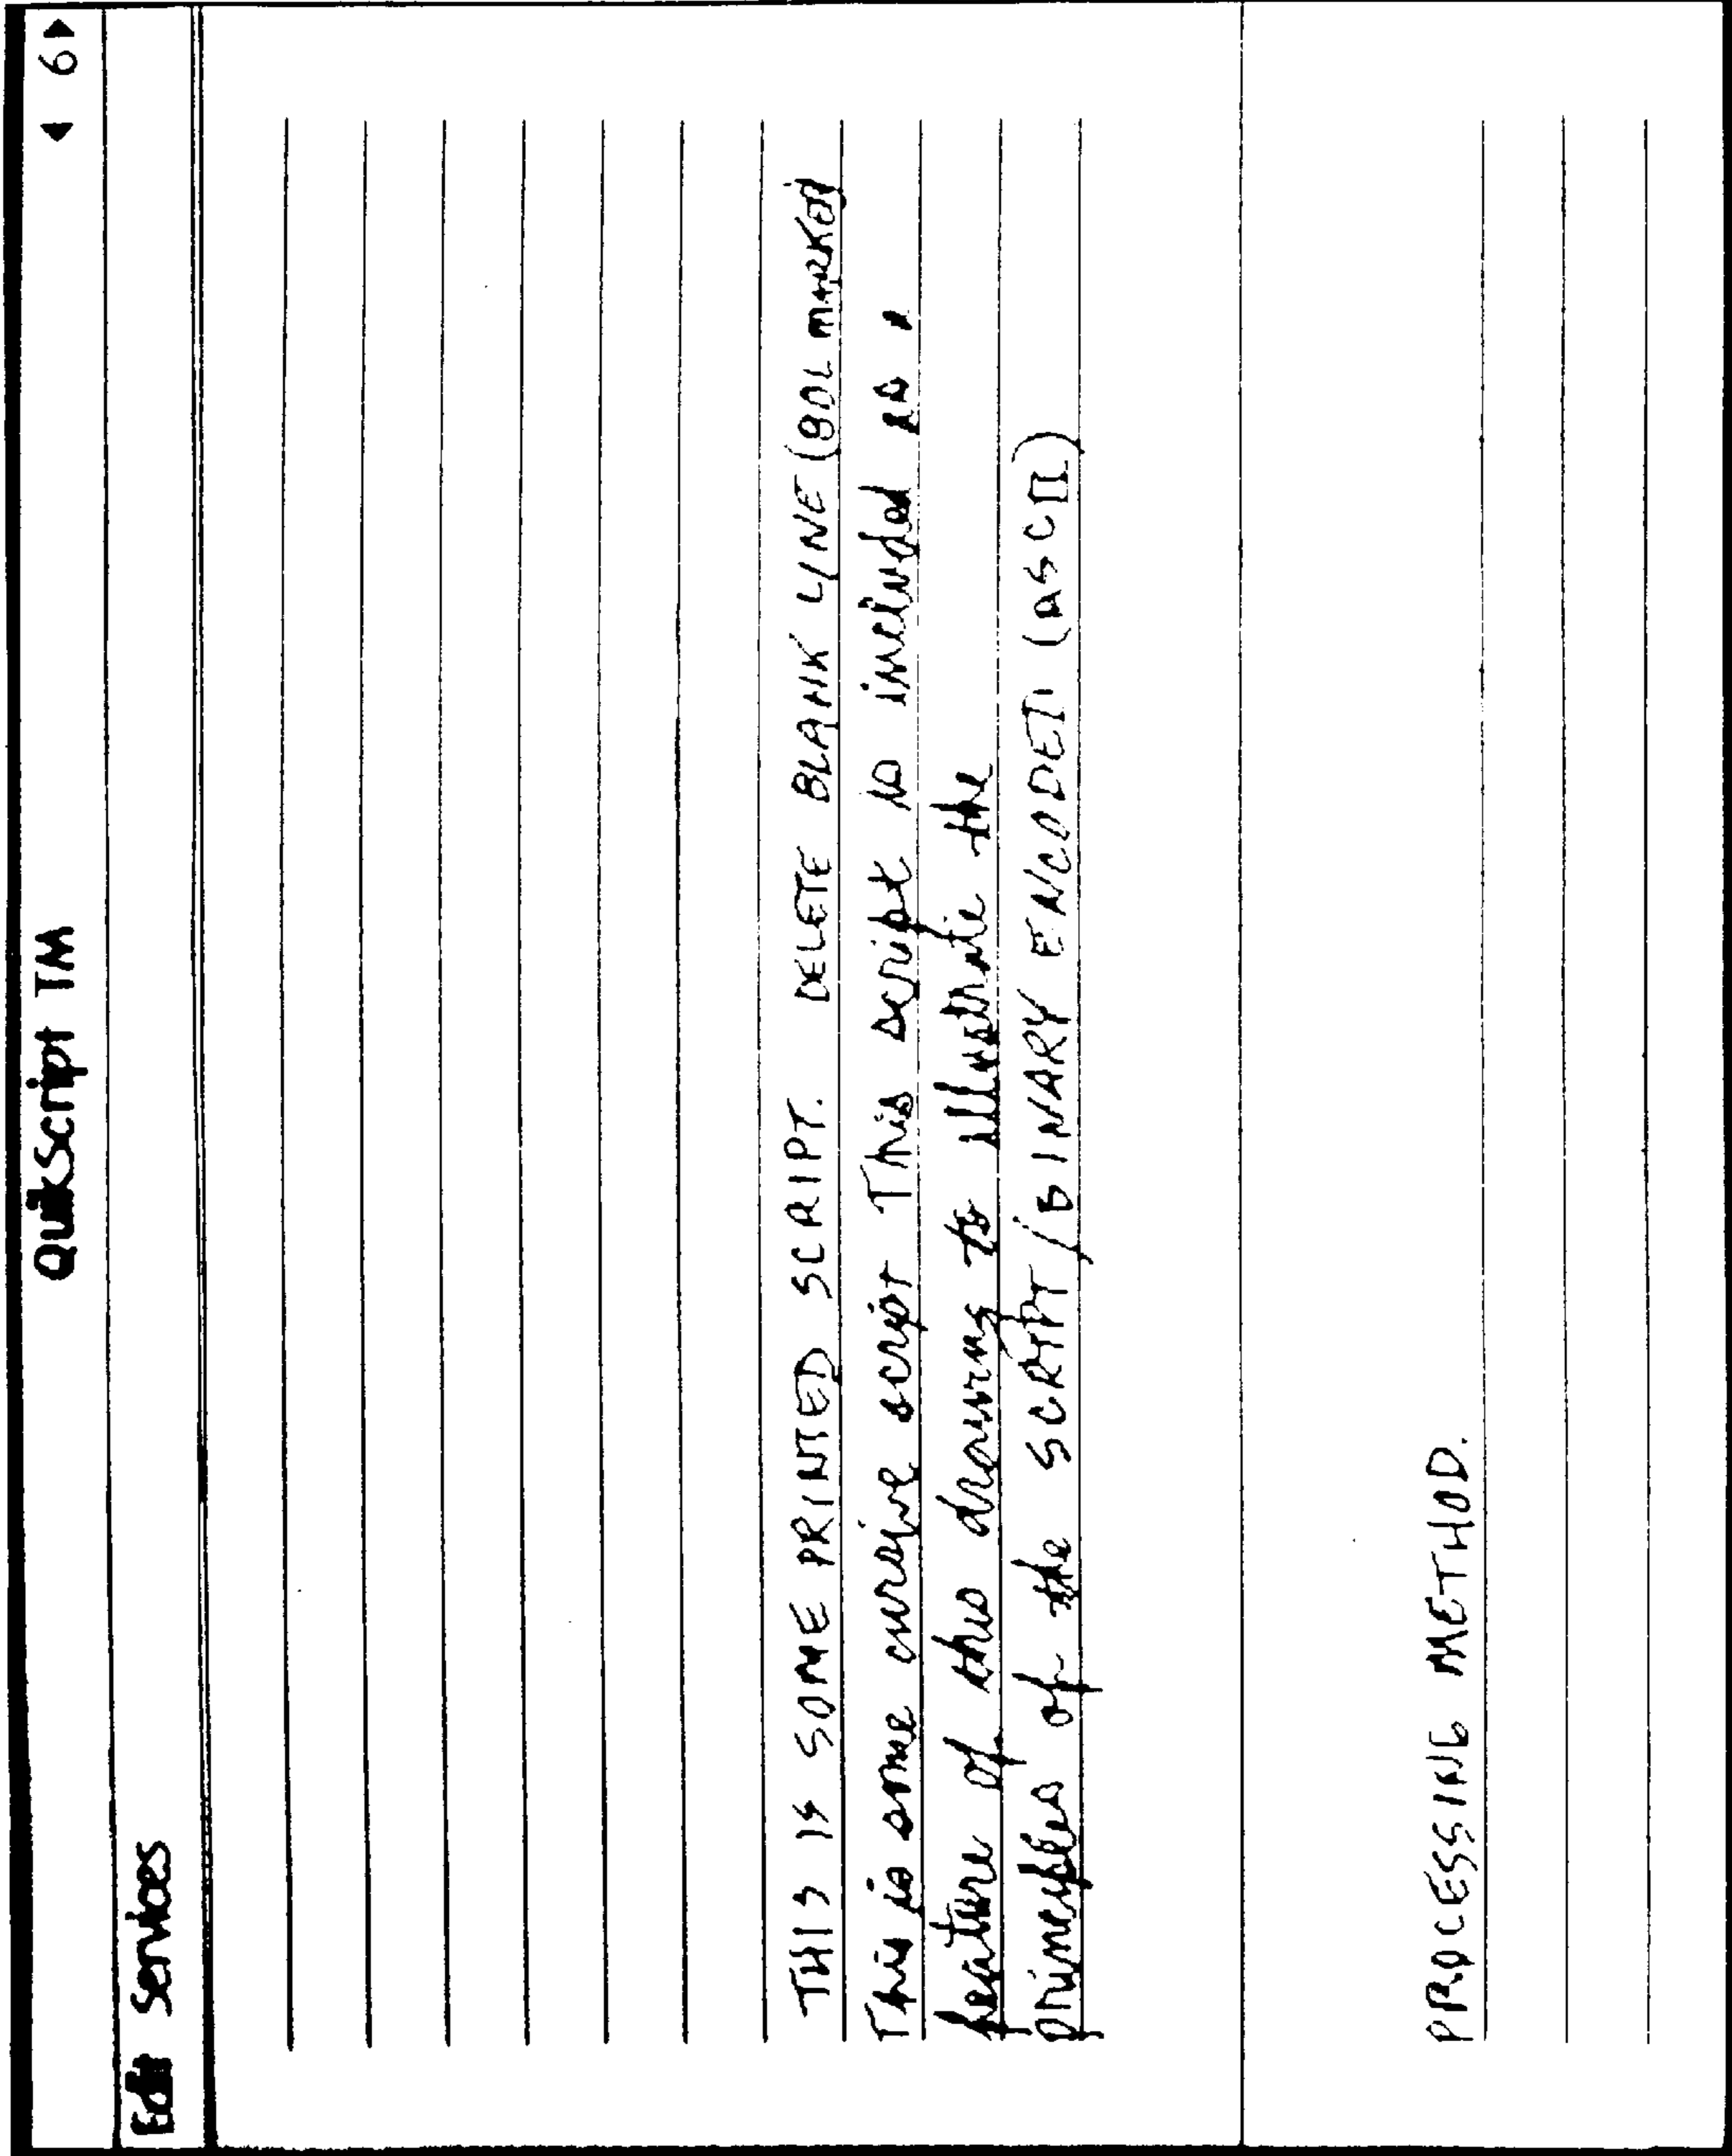 QuikScript TM ◄ 6 ►
Edit Services
THIS IS SOME PRINTED SCRIPT. DELETE BLANK LINE (BOL marked
This is some cursive script This script is included as
feature of this drawing to illustrate the
principles of the SCRIPT/BINARY ENCODED (ASCII)
PROCESSING METHOD.